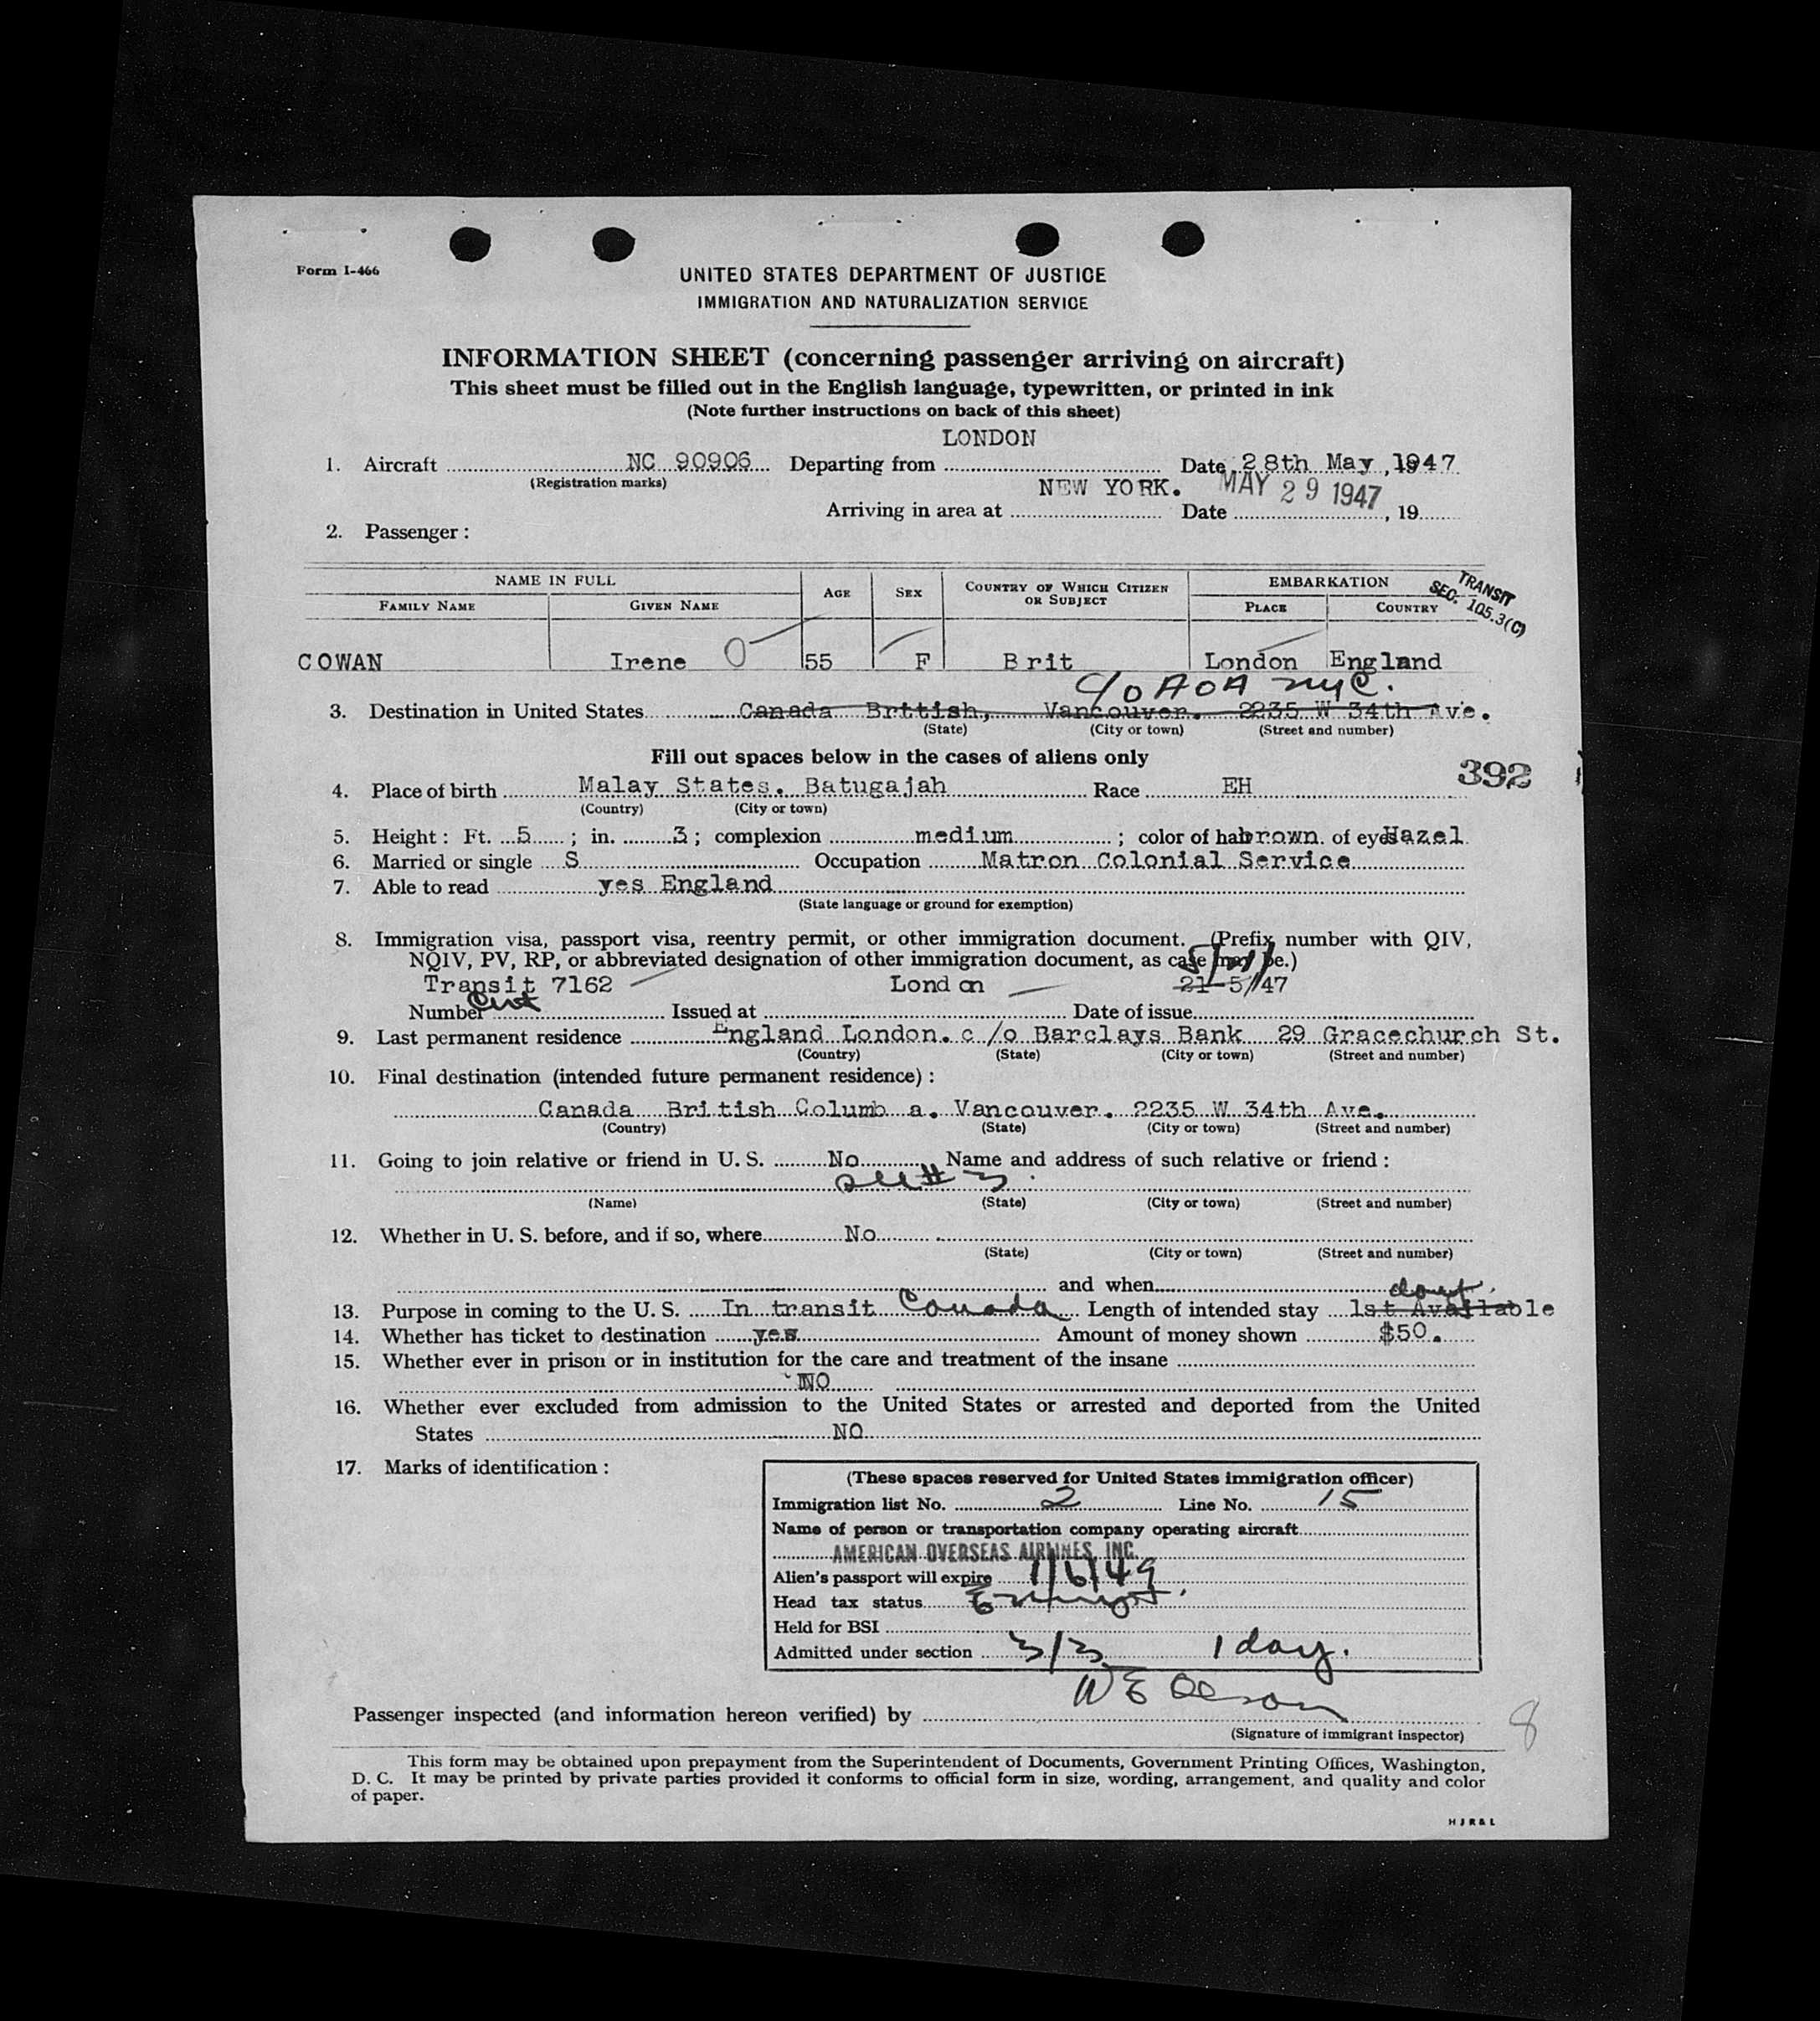 Form I-466
UNITED STATES DEPARTMENT OF JUSTICE
IMMIGRATION AND NATURALIZATION SERVICE
INFORMATION SHEET (concerning passenger arriving on aircraft)
This sheet must be filled out in the English language, typewritten, or printed in ink
(Note further instructions on back of this sheet)
LONDON
1. Aircraft NC 90906 Departing from Date 28th May, 1947
(Registration marks)
NEW YORK. MAY 29 1947
Arriving in area at Date , 19
2. Passenger:
NAME IN FULL AGE SEX COUNTRY OF WHICH CITIZEN OR SUBJECT EMBARKATION
TRANSIT SEC. 105.3(C)
FAMILY NAME GIVEN NAME PLACE COUNTRY
COWAN Irene 0 55 F Brit London England
C/o AOA NYC.
3. Destination in United States Canada Brttish, Vancouver. 2235 W 34th Ave.
(State) (City or town) (Street and number)
Fill out spaces below in the cases of aliens only
392
4. Place of birth Malay States. Batugajah Race EH
(Country) (City or town)
5. Height: Ft. 5; in. 3; complexion medium; color of hair brown. of eyes Hazel
6. Married or single S Occupation Matron Colonial Service
7. Able to read yes England
(State language or ground for exemption)
8. Immigration visa, passport visa, reentry permit, or other immigration document. (Prefix number with QIV,
NQIV, PV, RP, or abbreviated designation of other immigration document, as case may be.)
Transit 7162 London 21-5/47
Number Issued at Date of issue
9. Last permanent residence England London. c/o Barclays Bank 29 Gracechurch St.
(Country) (State) (City or town) (Street and number)
10. Final destination (intended future permanent residence):
Canada British Columb a. Vancouver. 2235 W 34th Ave.
(Country) (State) (City or town) (Street and number)
11. Going to join relative or friend in U. S. No Name and address of such relative or friend:
see # 3
(Name) (State) (City or town) (Street and number)
12. Whether in U. S. before, and if so, where No
(State) (City or town) (Street and number)
and when
13. Purpose in coming to the U. S. In transit Canada Length of intended stay 1st Available
14. Whether has ticket to destination yes Amount of money shown $50.
15. Whether ever in prison or in institution for the care and treatment of the insane
NO
16. Whether ever excluded from admission to the United States or arrested and deported from the United
States NO
17. Marks of identification:
(These spaces reserved for United States immigration officer)
Immigration list No. 2 Line No. 15
Name of person or transportation company operating aircraft
AMERICAN OVERSEAS AIRLINES, INC.
Alien's passport will expire 1/6/49
Head tax status Exempt.
Held for BSI
Admitted under section 3/3 1 day.
Passenger inspected (and information hereon verified) by W E Olson
(Signature of immigrant inspector)
8
This form may be obtained upon prepayment from the Superintendent of Documents, Government Printing Offices, Washington,
D. C. It may be printed by private parties provided it conforms to official form in size, wording, arrangement, and quality and color
of paper.
HJR&L